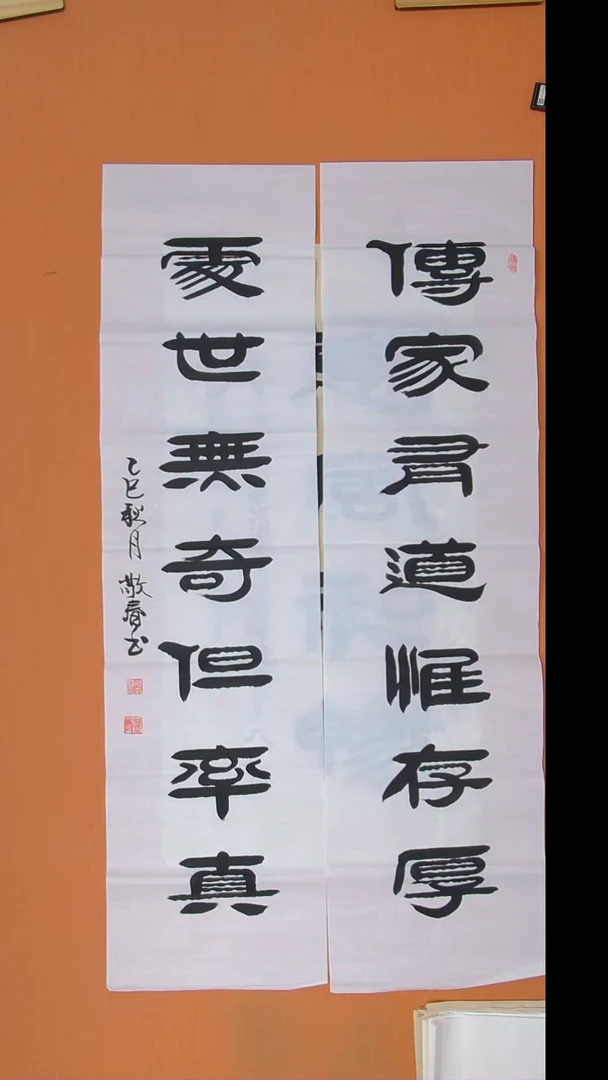 傳家有道惟存厚
處世無奇但率真
乙巳秋月 敬春书